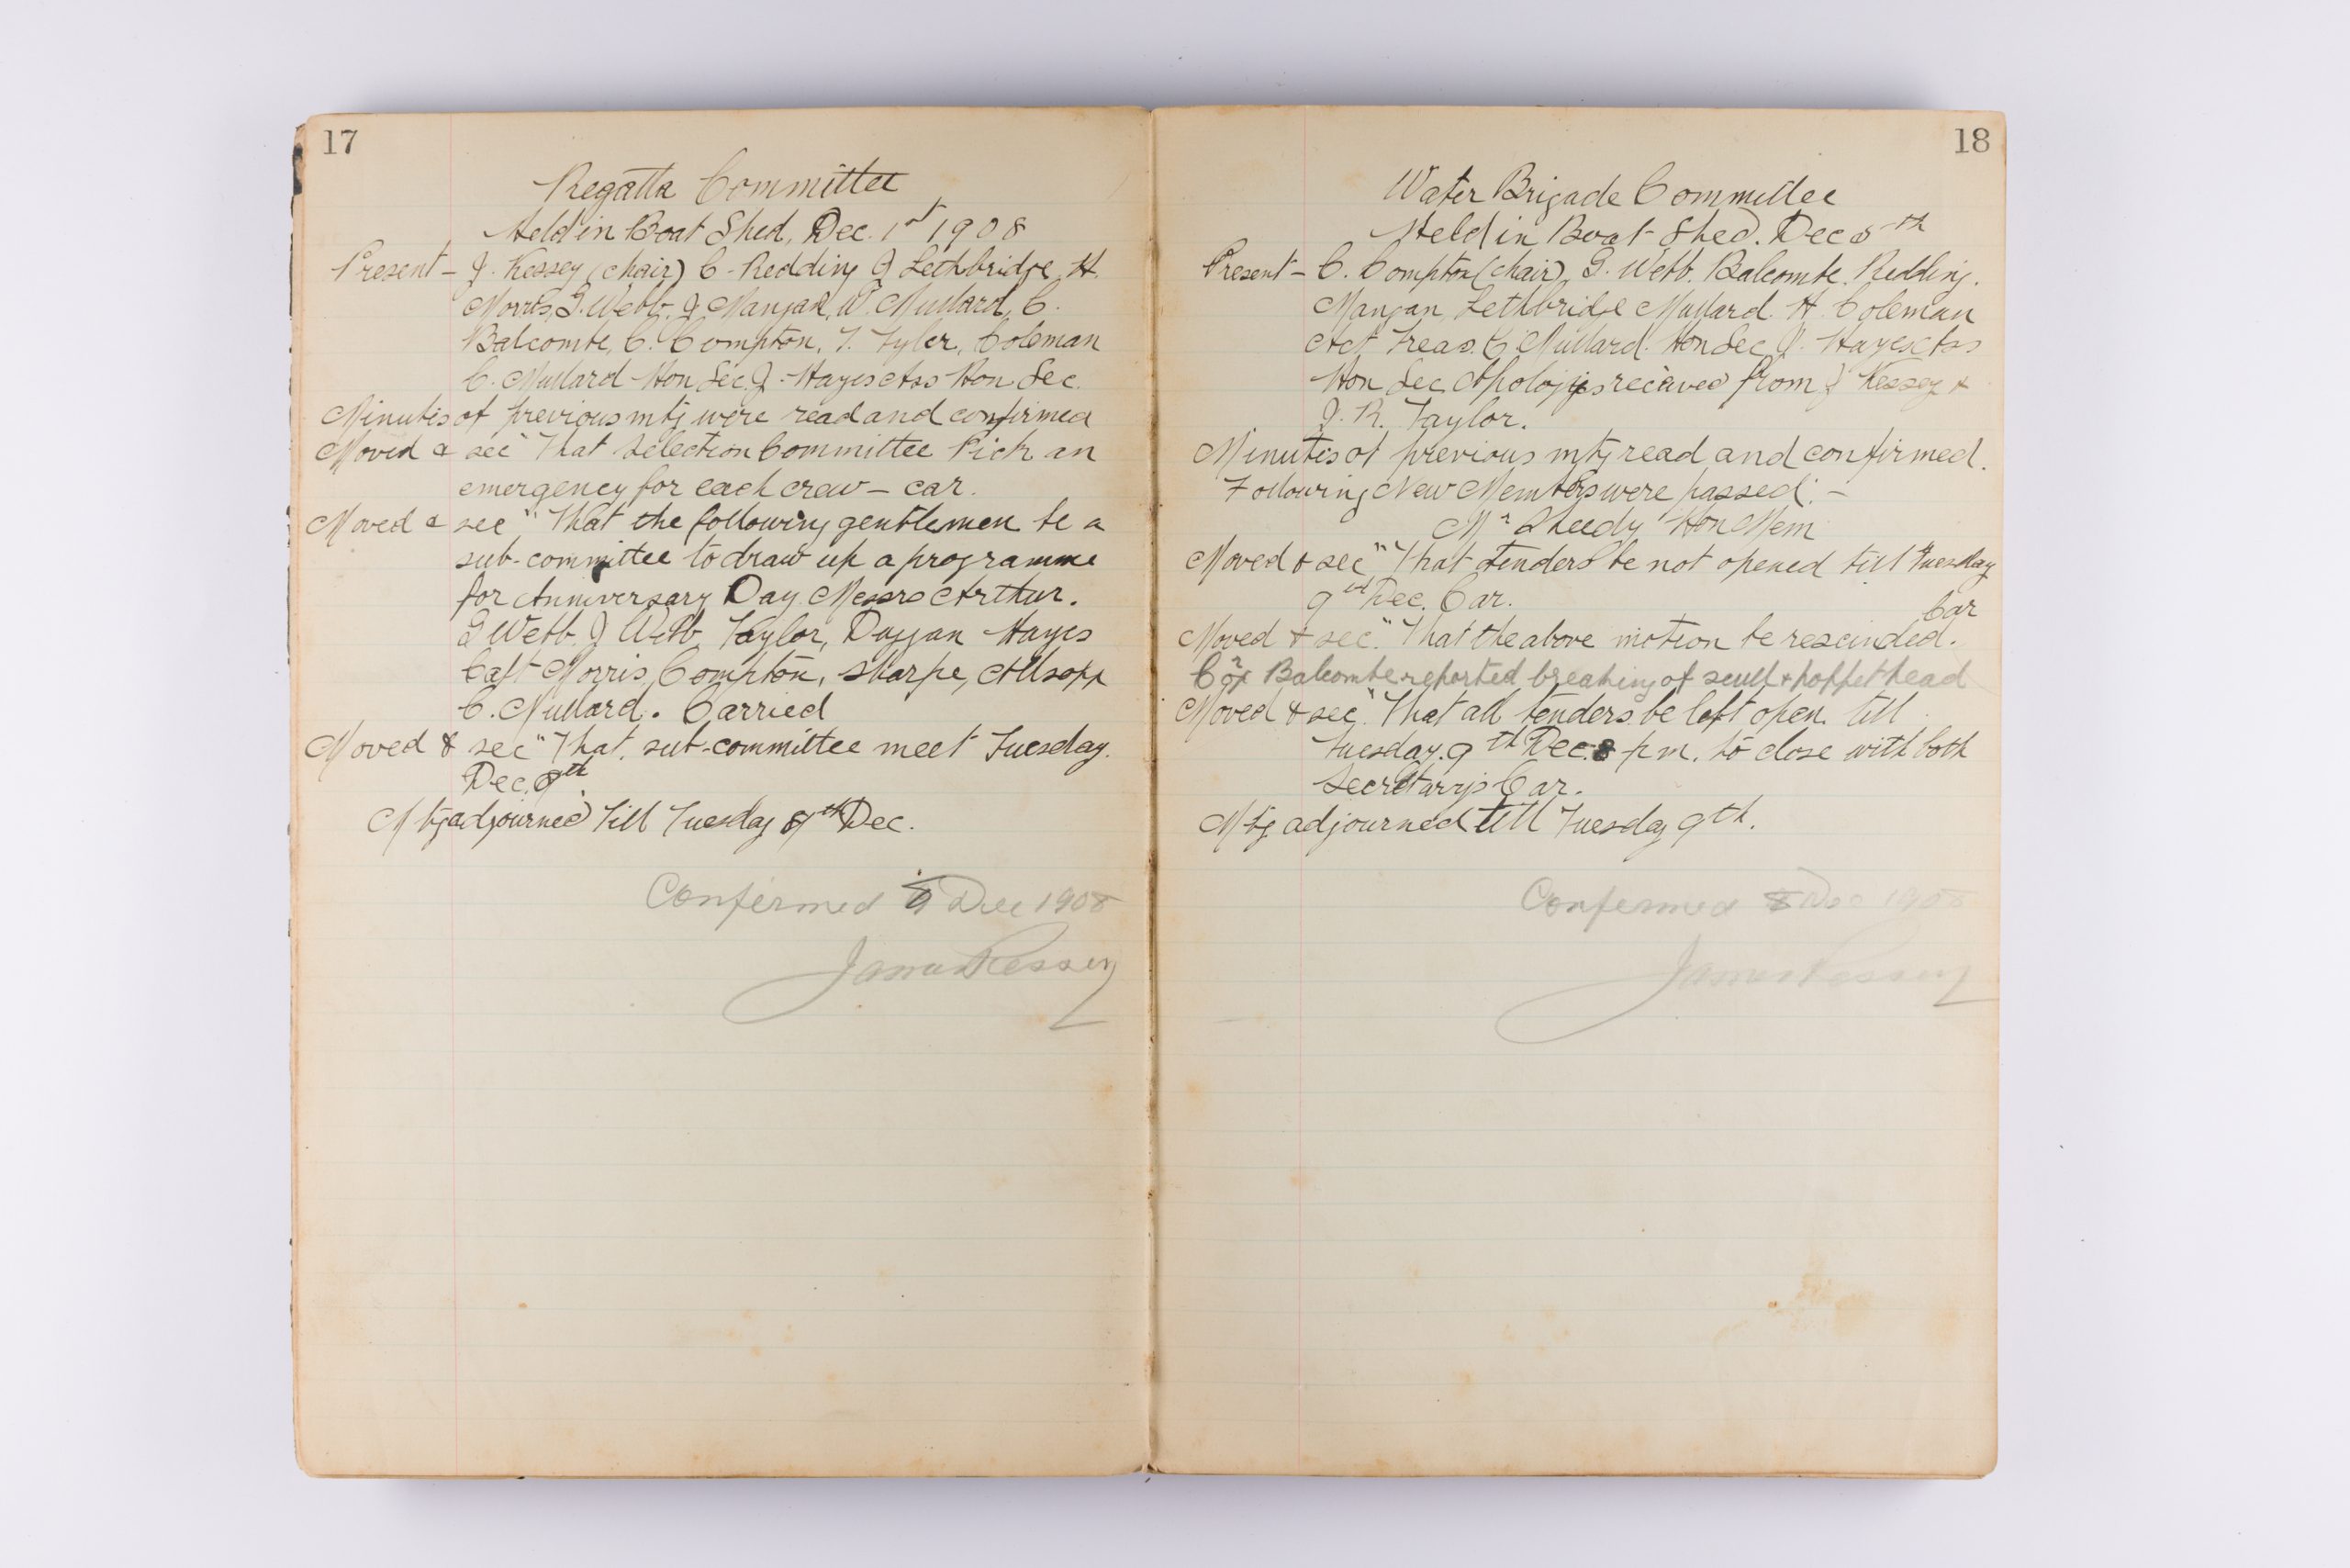 17
Regatta Committee
Held in Boat Shed, Dec. 1st 1908
Present - J. Kessey (chair) C. Redding J Lethbridge, H.
Morris, G. Webb, J Mangan, W. Mullard, C.
Balcombe, C. Compton, T. Tyler, Coleman
C. Mullard Hon Sec. J. Hayes Ass Hon Sec.
Minutes of previous mtg were read and confirmed
Moved & sec "That Selection Committee Pick an
emergency for each crew - car.
Moved & sec "That the following gentlemen be a
sub-committee to draw up a programme
for Anniversary Day Messrs Arthur.
G Webb. J Webb, Taylor, Duggan Hayes
Capt Morris, Compton, Sharpe, Allsopp
C. Mullard. Carried
Moved & sec "That. sub-committee meet Tuesday.
Dec. 8th
Mtg adjourned till Tuesday 8th Dec.
Confirmed Dec 1908
James Kessey
18
Water Brigade Committee
Held in Boat Shed. Dec 8th
Present - C. Compton (chair), G. Webb. Balcombe. Redding.
Mangan, Lethbridge Mullard. H. Coleman
Act Treas. C Mullard. Hon Sec J. Hayes Ass
Hon Sec. Apologies recieved from J Kessey &
J. R. Taylor.
Minutes of previous mtg read and confirmed.
Following New Members were passed: -
Mr Sheedy Hon Mem
Moved & sec "That tenders be not opened till Tuesday
9th Dec. Car.
Moved & sec. "That the above motion be rescinded. Car
Cox Balcombe reported breaking of scull & poppet head
Moved & sec. "That all tenders be left open. till
Tuesday. 9th Dec. 8 pm. to close with both
Secretary's Car.
Mtg adjourned till Tuesday 9th.
Confirmed 8 Dec 1908
James Kessey